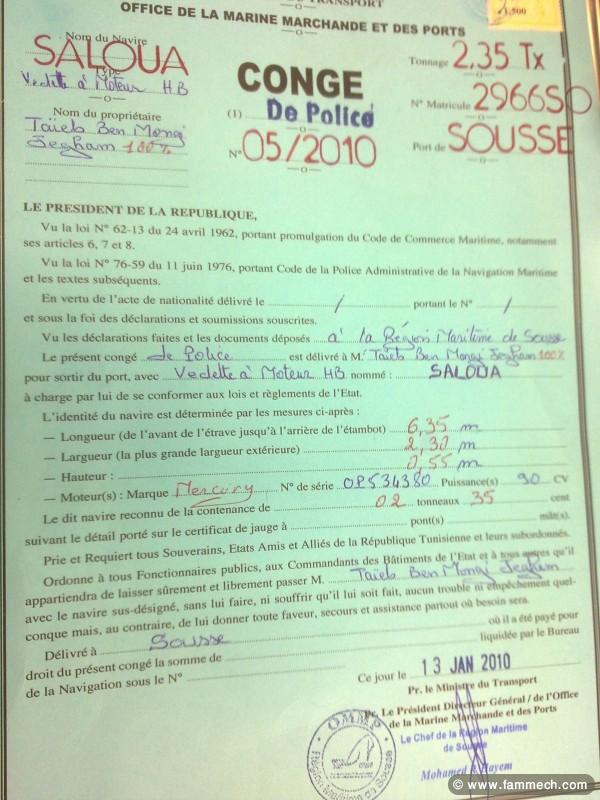 TRANSPORT
OFFICE DE LA MARINE MARCHANDE ET DES PORTS
1,500
Nom du Navire
SALOUA
Type
Vedette à Moteur HB
Nom du propriétaire
Taïeb Ben Mongi
Segham 100%
CONGE
(1) De Police
N° 05/2010
Tonnage 2,35 Tx
N° Matricule 2966SO
Port de SOUSSE
LE PRESIDENT DE LA REPUBLIQUE,
Vu la loi N° 62-13 du 24 avril 1962, portant promulgation du Code de Commerce Maritime, notamment
ses articles 6, 7 et 8.
Vu la loi N° 76-59 du 11 juin 1976, portant Code de la Police Administrative de la Navigation Maritime
et les textes subséquents.
En vertu de l'acte de nationalité délivré le / portant le N° /
et sous la foi des déclarations et soumissions souscrites.
Vu les déclarations faites et les documents déposés à la Région Maritime de Sousse
Le présent congé de Police est délivré à M. Taïeb Ben Mongi Segham 100%
pour sortir du port, avec Vedette à Moteur HB nommé : SALOUA
à charge par lui de se conformer aux lois et règlements de l'Etat.
L'identité du navire est déterminée par les mesures ci-après :
— Longueur (de l'avant de l'étrave jusqu'à l'arrière de l'étambot) 6,35 m
— Largeur (la plus grande largeur extérieure) 2,30 m
— Hauteur : 0,55 m
— Moteur(s) : Marque Mercury N° de série OP534380 Puissance(s) 90 CV
Le dit navire reconnu de la contenance de 02 tonneaux 35 cent
suivant le détail porté sur le certificat de jauge à pont(s) mât(s).
Prie et Requiert tous Souverains, Etats Amis et Alliés de la République Tunisienne et leurs subordonnés.
Ordonne à tous Fonctionnaires publics, aux Commandants des Bâtiments de l'Etat et à tous autres qu'il
appartiendra de laisser sûrement et librement passer M. Taïeb Ben Mongi Segham
avec le navire sus-désigné, sans lui faire, ni souffrir qu'il lui soit fait, aucun trouble ni empêchement quel-
conque mais, au contraire, de lui donner toute faveur, secours et assistance partout où besoin sera.
Délivré à Sousse où il a été payé pour
droit du présent congé la somme de liquidée par le Bureau
de la Navigation sous le N°
Ce jour le : 13 JAN 2010
Pr. le Ministre du Transport
Pr. Le Président Directeur Général / de l'Office
de la Marine Marchande et des Ports
Le Chef de la Région Maritime
de Sousse
Mohamed R. Hayem
OMMP
Région Maritime de Sousse
© www.fammech.com